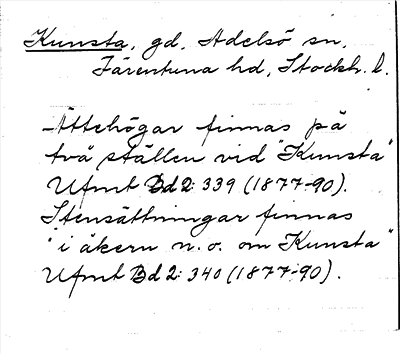 Kunsta, gd, Adelsö sn,
Färentuna hd, Stockh. l.
Ättehögar finnas på
två ställen vid "Kunsta"
Ufmt Bd 2: 339 (1877-90).
Stensättningar finnas
"i åkern n.o. om Kunsta"
Ufmt Bd 2: 340 (1877-90).